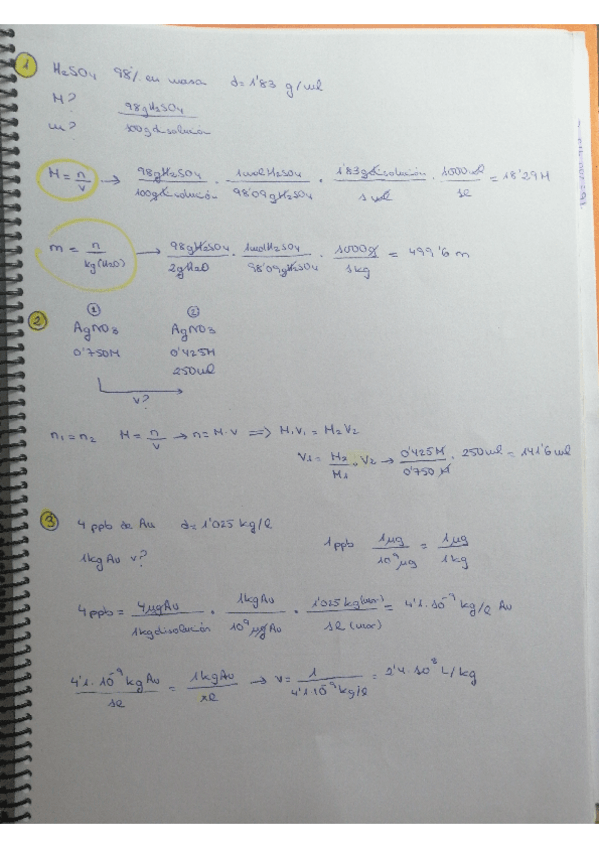 1 H2SO4 98% en masa d=1'83 g/ml
M? 98gH2SO4 / 100g disolución
m?
M = n/v → 98gH2SO4/100g disolución · 1molH2SO4/98'09gH2SO4 · 1'83g disolución/1 ml · 1000ml/1l = 18'29M
m = n/kg(H2O) → 98gH2SO4/2gH2O · 1molH2SO4/98'09gH2SO4 · 1000g/1kg = 499'6 m
2 ① ②
AgNO3 AgNO3
0'750M 0'425M
250ml
v?
n1=n2 M = n/v → n=M·v => M1V1 = M2V2
V1 = M2/M1 · V2 → 0'425M/0'750M · 250ml = 141'6ml
3 4 ppb de Au d=1'025 kg/l
1kgAu v? 1ppb 1µg/10⁹µg = 1µg/1kg
4ppb = 4µgAu/1kgdisolución · 1kgAu/10⁹µgAu · 1'025kg(mar)/1l(mar) = 4'1·10⁻⁹ kg/l Au
4'1·10⁻⁹kgAu/1l = 1kgAu/xl → v = 1/4'1·10⁻⁹kg/l = 2'4·10⁸ L/kg